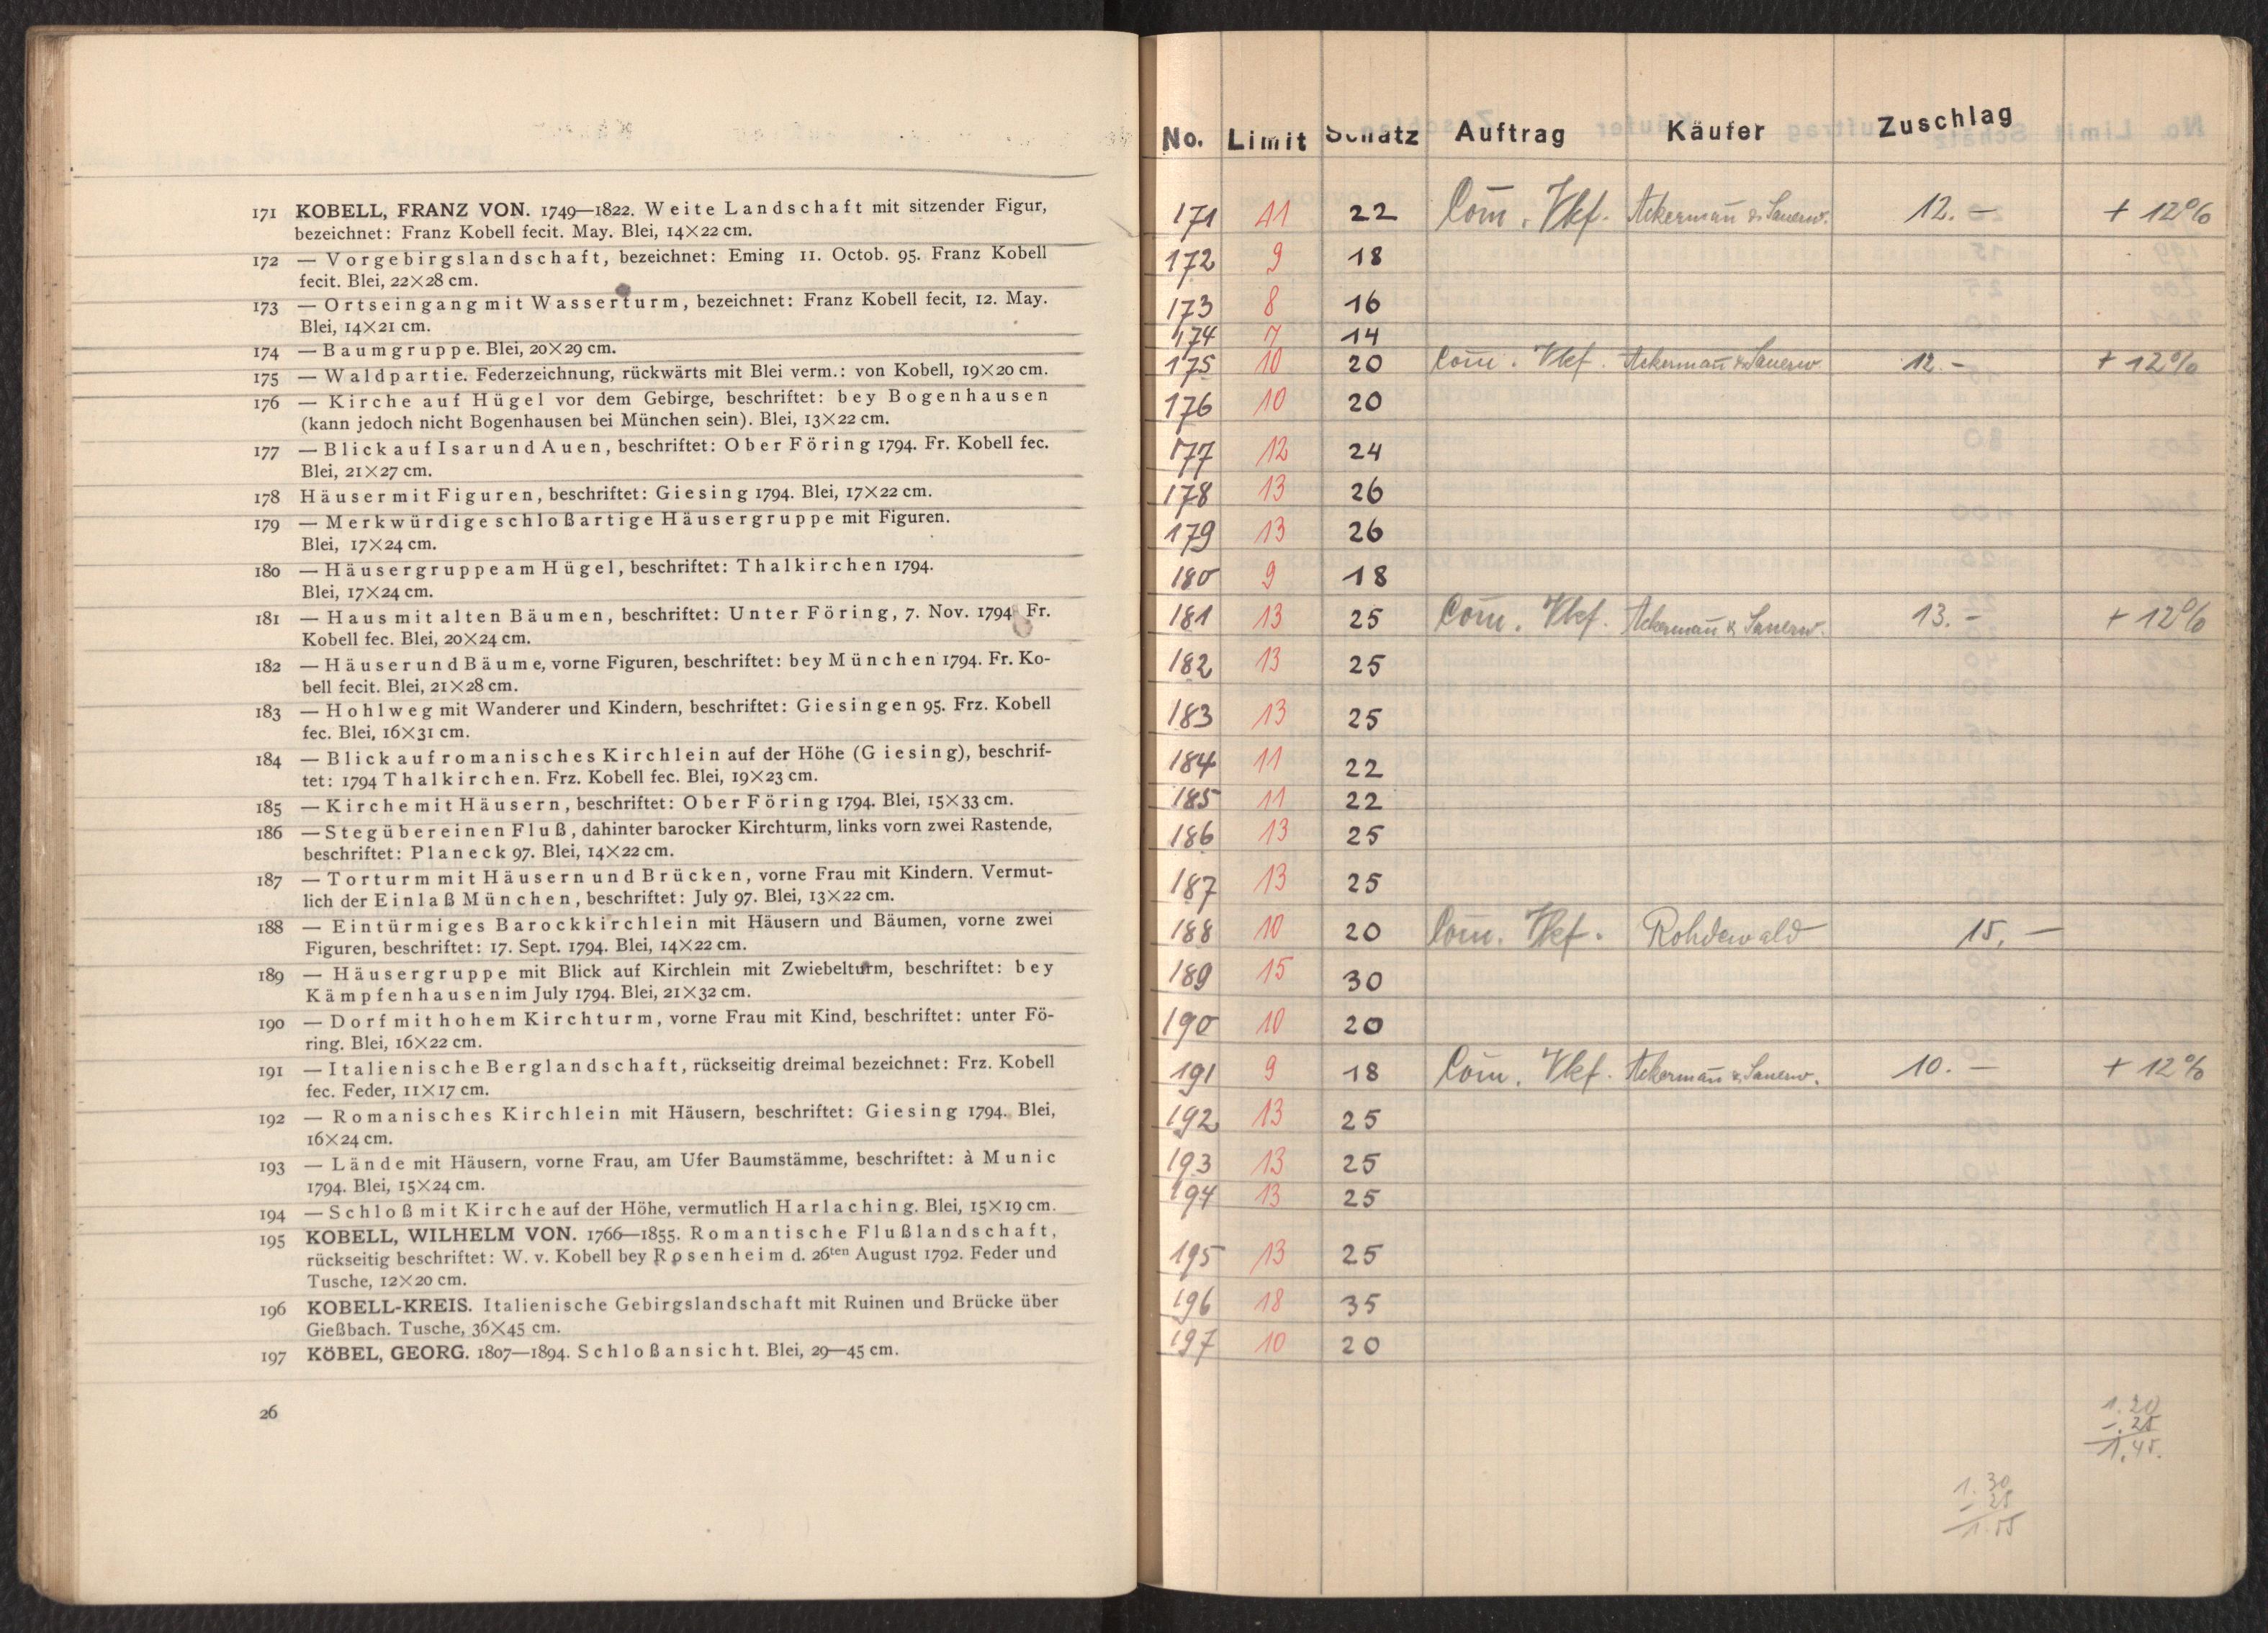 171 KOBELL, FRANZ VON. 1749—1822. Weite Landschaft mit sitzender Figur,
bezeichnet: Franz Kobell fecit. May. Blei, 14×22 cm.
172 — Vorgebirgslandschaft, bezeichnet: Eming 11. Octob. 95. Franz Kobell
fecit. Blei, 22×28 cm.
173 — Ortseingang mit Wasserturm, bezeichnet: Franz Kobell fecit, 12. May.
Blei, 14×21 cm.
174 — Baumgruppe. Blei, 20×29 cm.
175 — Waldpartie. Federzeichnung, rückwärts mit Blei verm.: von Kobell, 19×20 cm.
176 — Kirche auf Hügel vor dem Gebirge, beschriftet: bey Bogenhausen
(kann jedoch nicht Bogenhausen bei München sein). Blei, 13×22 cm.
177 — Blick auf Isar und Auen, beschriftet: Ober Föring 1794. Fr. Kobell fec.
Blei, 21×27 cm.
178 Häuser mit Figuren, beschriftet: Giesing 1794. Blei, 17×22 cm.
179 — Merkwürdige schloßartige Häusergruppe mit Figuren.
Blei, 17×24 cm.
180 — Häusergruppe am Hügel, beschriftet: Thalkirchen 1794.
Blei, 17×24 cm.
181 — Haus mit alten Bäumen, beschriftet: Unter Föring, 7. Nov. 1794 Fr.
Kobell fec. Blei, 20×24 cm.
182 — Häuser und Bäume, vorne Figuren, beschriftet: bey München 1794. Fr. Ko-
bell fecit. Blei, 21×28 cm.
183 — Hohlweg mit Wanderer und Kindern, beschriftet: Giesingen 95. Frz. Kobell
fec. Blei, 16×31 cm.
184 — Blick auf romanisches Kirchlein auf der Höhe (Giesing), beschrif-
tet: 1794 Thalkirchen. Frz. Kobell fec. Blei, 19×23 cm.
185 — Kirche mit Häusern, beschriftet: Ober Föring 1794. Blei, 15×33 cm.
186 — Steg über einen Fluß, dahinter barocker Kirchturm, links vorn zwei Rastende,
beschriftet: Planeck 97. Blei, 14×22 cm.
187 — Torturm mit Häusern und Brücken, vorne Frau mit Kindern. Vermut-
lich der Einlaß München, beschriftet: July 97. Blei, 13×22 cm.
188 — Eintürmiges Barockkirchlein mit Häusern und Bäumen, vorne zwei
Figuren, beschriftet: 17. Sept. 1794. Blei, 14×22 cm.
189 — Häusergruppe mit Blick auf Kirchlein mit Zwiebelturm, beschriftet: bey
Kämpfenhausen im July 1794. Blei, 21×32 cm.
190 — Dorf mit hohem Kirchturm, vorne Frau mit Kind, beschriftet: unter Fö-
ring. Blei, 16×22 cm.
191 — Italienische Berglandschaft, rückseitig dreimal bezeichnet: Frz. Kobell
fec. Feder, 11×17 cm.
192 — Romanisches Kirchlein mit Häusern, beschriftet: Giesing 1794. Blei,
16×24 cm.
193 — Lände mit Häusern, vorne Frau, am Ufer Baumstämme, beschriftet: à Munic
1794. Blei, 15×24 cm.
194 — Schloß mit Kirche auf der Höhe, vermutlich Harlaching. Blei, 15×19 cm.
195 KOBELL, WILHELM VON. 1766—1855. Romantische Flußlandschaft,
rückseitig beschriftet: W. v. Kobell bey Rosenheim d. 26ten August 1792. Feder und
Tusche, 12×20 cm.
196 KOBELL-KREIS. Italienische Gebirgslandschaft mit Ruinen und Brücke über
Gießbach. Tusche, 36×45 cm.
197 KÖBEL, GEORG. 1807—1894. Schloßansicht. Blei, 29—45 cm.
26
No. Limit Schätz Auftrag Käufer Zuschlag
171 11 22 Com. Vkf. Ackermañ & Sauerw. 12.— + 12%
172 9 18
173 8 16
174 7 14
175 10 20 Com. Vkf. Ackermañ & Sauerw. 12.— + 12%
176 10 20
177 12 24
178 13 26
179 13 26
180 9 18
181 13 25 Com. Vkf. Ackermañ & Sauerw. 13.— + 12%
182 13 25
183 13 25
184 11 22
185 11 22
186 13 25
187 13 25
188 10 20 Com. Vkf. Rohdewald 15.—
189 15 30
190 10 20
191 9 18 Com. Vkf. Ackermañ & Sauerw. 10.— + 12%
192 13 25
193 13 25
194 13 25
195 13 25
196 18 35
197 10 20
1.20
-.25
1.45.
1.30
-.25
1.55